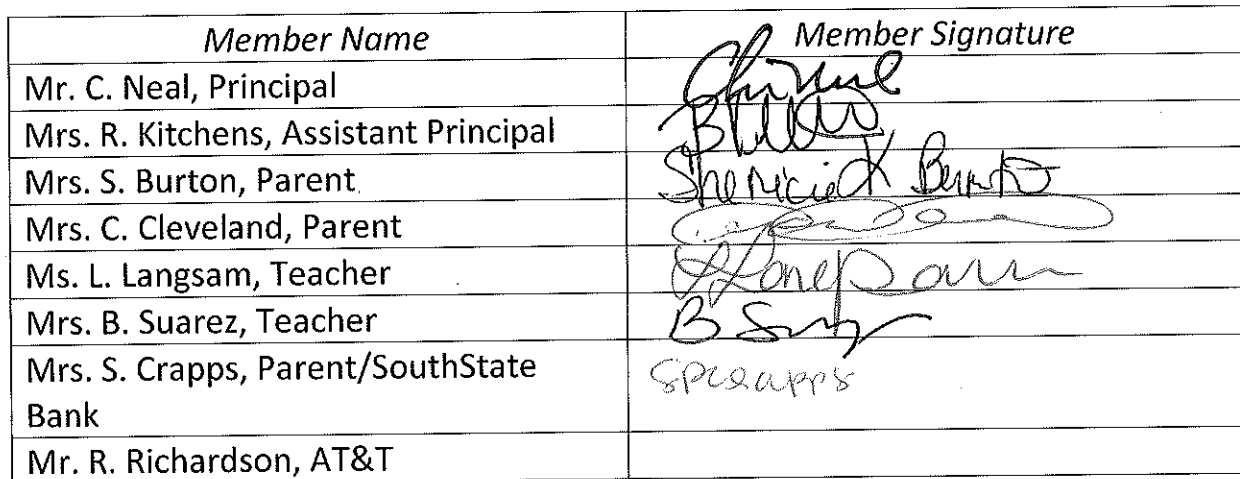 Member Name Member Signature
Mr. C. Neal, Principal
Mrs. R. Kitchens, Assistant Principal
Mrs. S. Burton, Parent
Mrs. C. Cleveland, Parent
Ms. L. Langsam, Teacher
Mrs. B. Suarez, Teacher B
Mrs. S. Crapps, Parent/SouthState
Bank
Mr. R. Richardson, AT&T